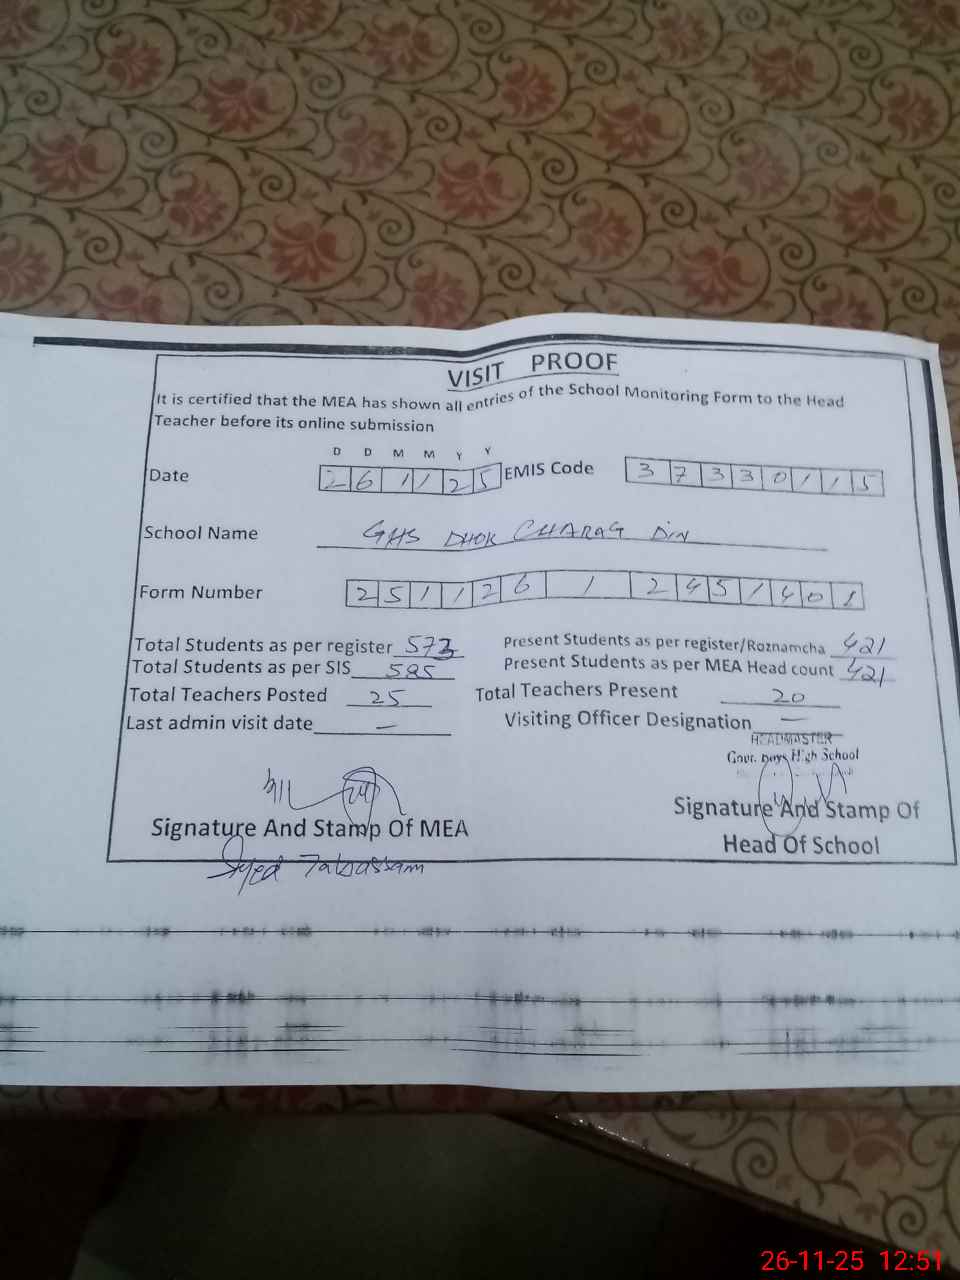 VISIT PROOF
It is certified that the MEA has shown all entries of the School Monitoring Form to the Head
Teacher before its online submission
D D M M Y Y
Date 2 6 1 1 2 5 EMIS Code 3 7 3 3 0 1 1 5
School Name GHS DHOK CHARAG DIN
Form Number 2 5 1 1 2 6 1 2 4 5 1 4 0 1
Total Students as per register 573 Present Students as per register/Roznamcha 421
Total Students as per SIS 585 Present Students as per MEA Head count 421
Total Teachers Posted 25 Total Teachers Present 20
Last admin visit date — Visiting Officer Designation —
HEADMASTER
Govt. Boys High School
Signature And Stamp Of MEA Signature And Stamp Of
Head Of School
Syed Tabassam
26-11-25 12:51